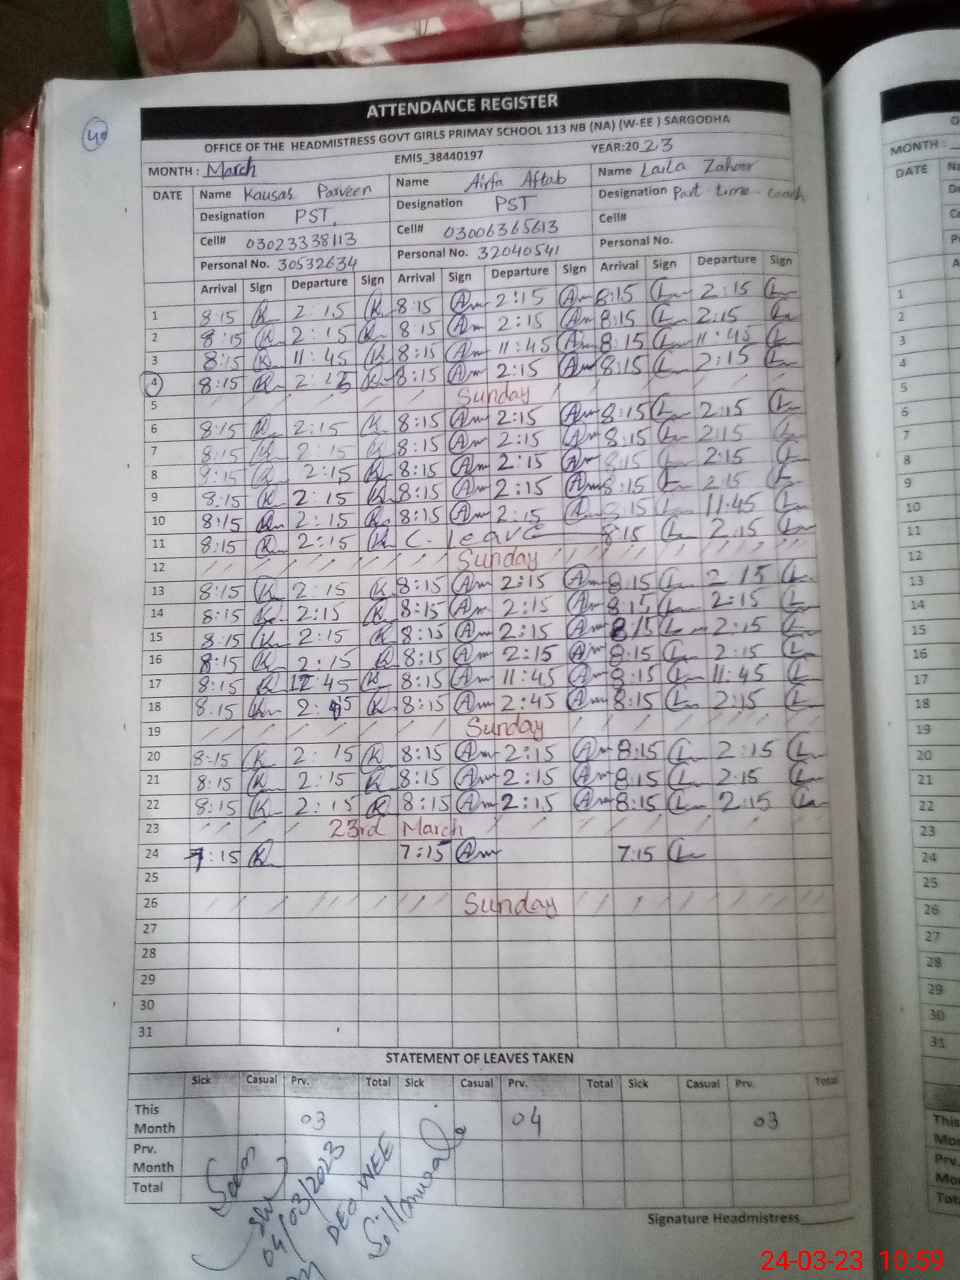 40
ATTENDANCE REGISTER
OFFICE OF THE HEADMISTRESS GOVT GIRLS PRIMAY SCHOOL 113 NB (NA) (W-EE ) SARGODHA
MONTH : March EMIS_38440197 YEAR:2023
DATE Name Kausar Parveen Name Airfa Aftab Name Laila Zaheer
Designation PST. Designation PST Designation Part time coach
Cell# 03023338113 Cell# 03006365613 Cell#
Personal No. 30532634 Personal No. 32040541 Personal No.
Arrival Sign Departure Sign Arrival Sign Departure Sign Arrival Sign Departure Sign
1 8:15 2:15 8:15 2:15 8:15 2:15
2 8:15 2:15 8:15 2:15 8:15 2:15
3 8:15 11:45 8:15 11:45 8:15 11:45
4 8:15 2:15 8:15 2:15 8:15 2:15
5 Sunday
6 8:15 2:15 8:15 2:15 8:15 2:15
7 8:15 2:15 8:15 2:15 8:15 2:15
8 2:15 8:15 2:15 8:15 2:15
9 8:15 2:15 8:15 2:15 8:15 2:15
10 8:15 2:15 8:15 2:15 8:15 11:45
11 8:15 2:15 C. leave 8:15 2:15
12 Sunday
13 8:15 2:15 8:15 2:15 8:15 2:15
14 8:15 2:15 8:15 2:15 8:15 2:15
15 8:15 2:15 8:15 2:15 8:15 2:15
16 8:15 2:15 8:15 2:15 8:15 2:15
17 8:15 :45 8:15 11:45 8:15 11:45
18 8:15 8:15 2:45 8:15 2:15
19 Sunday
20 8:15 2:15 8:15 2:15 8:15 2:15
21 8:15 2:15 8:15 2:15 8:15 2:15
22 8:15 2:15 8:15 2:15 8:15 2:15
23 23rd March
24 7:15 7:15 7:15
25
26 Sunday
27
28
29
30
31
STATEMENT OF LEAVES TAKEN
Sick Casual Prv. Total Sick Casual Prv. Total Sick Casual Prv. Total
This Month 03 04 03
Prv. Month
Total
04/03/2023
DEO WEE
Sillanwali
Signature Headmistress______
MONTH :
DATE
1
2
3
4
5
6
7
8
9
10
11
12
13
14
15
16
17
18
19
20
21
22
23
24
25
26
27
28
29
30
31
24-03-23 10:59